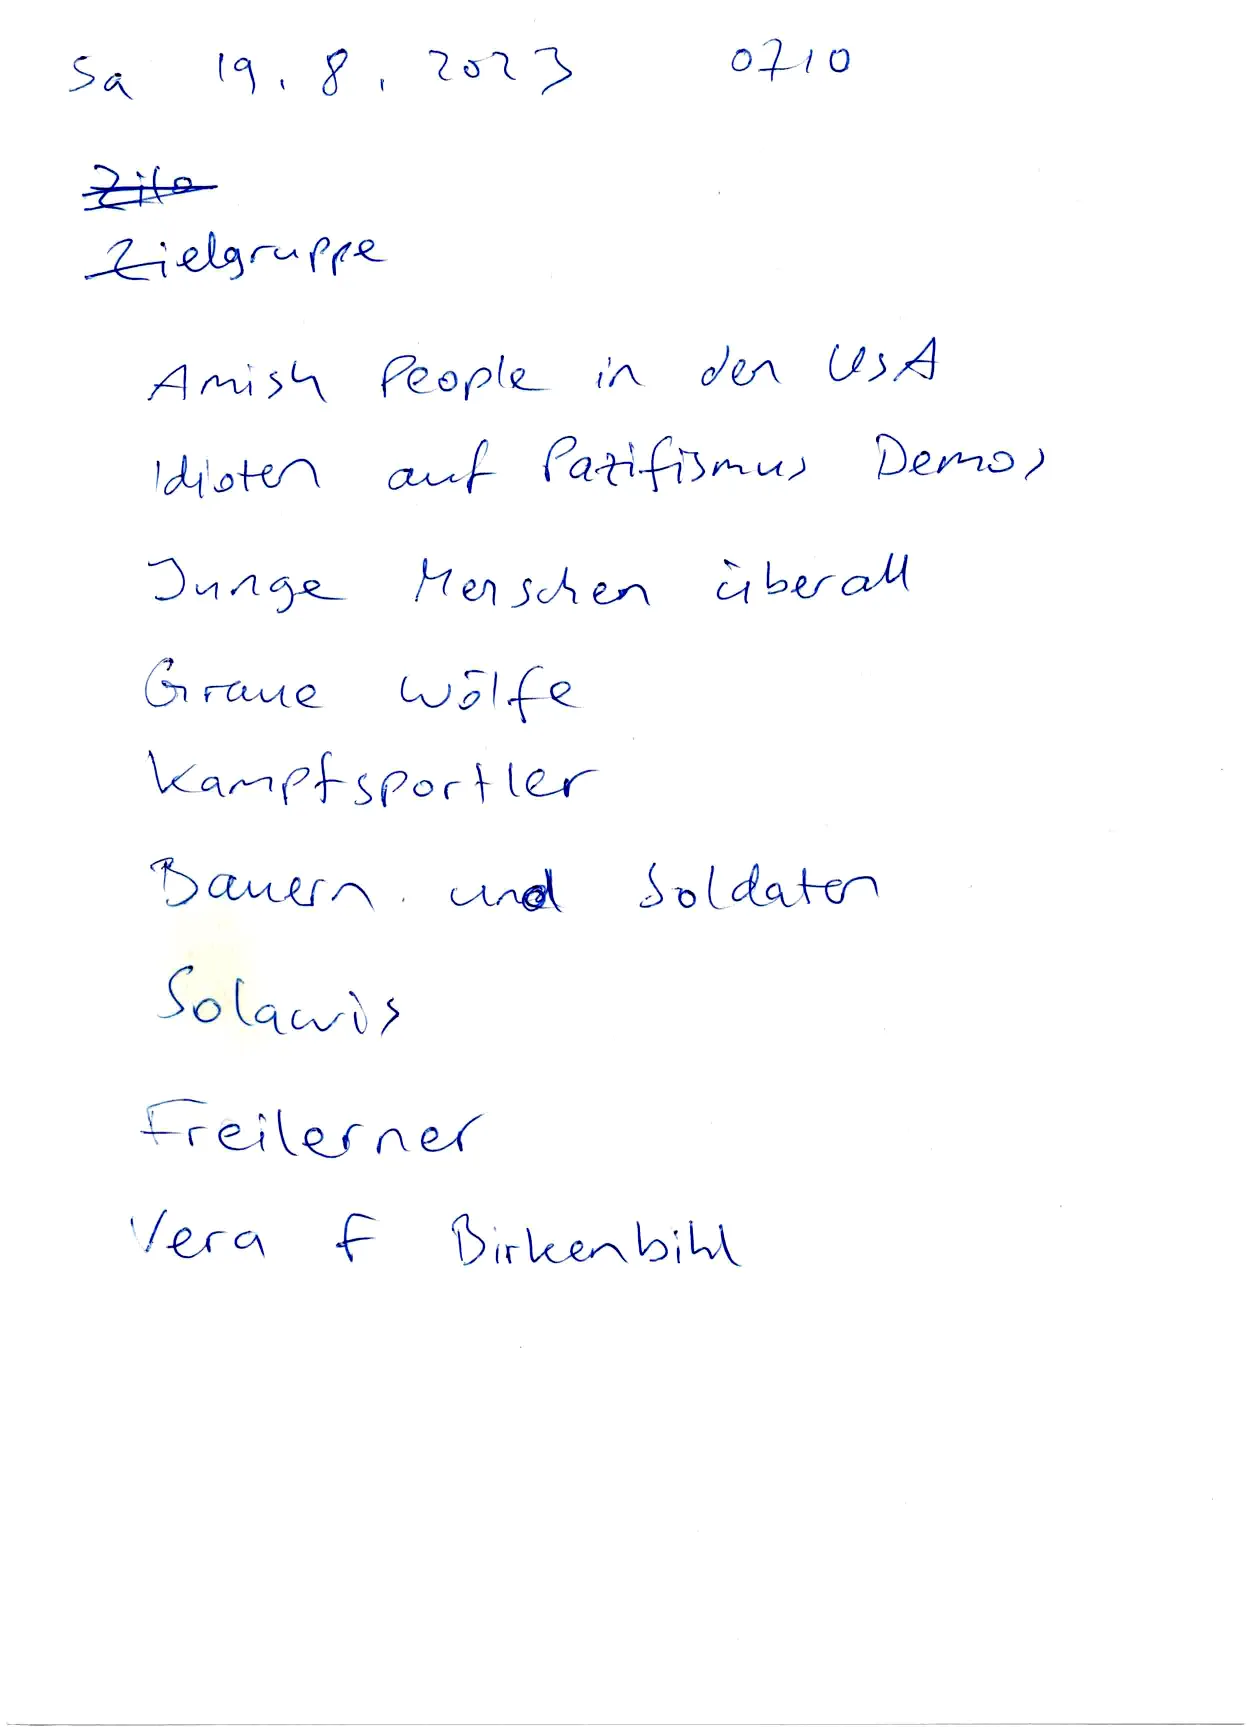 Sa 19.8.2023 0710
Zile
Zielgruppe
Amish People in den USA
Idioten auf Pazifismus Demos
Junge Menschen überall
Graue Wölfe
Kampfsportler
Bauern und Soldaten
Solawis
Freilerner
Vera F Birkenbihl